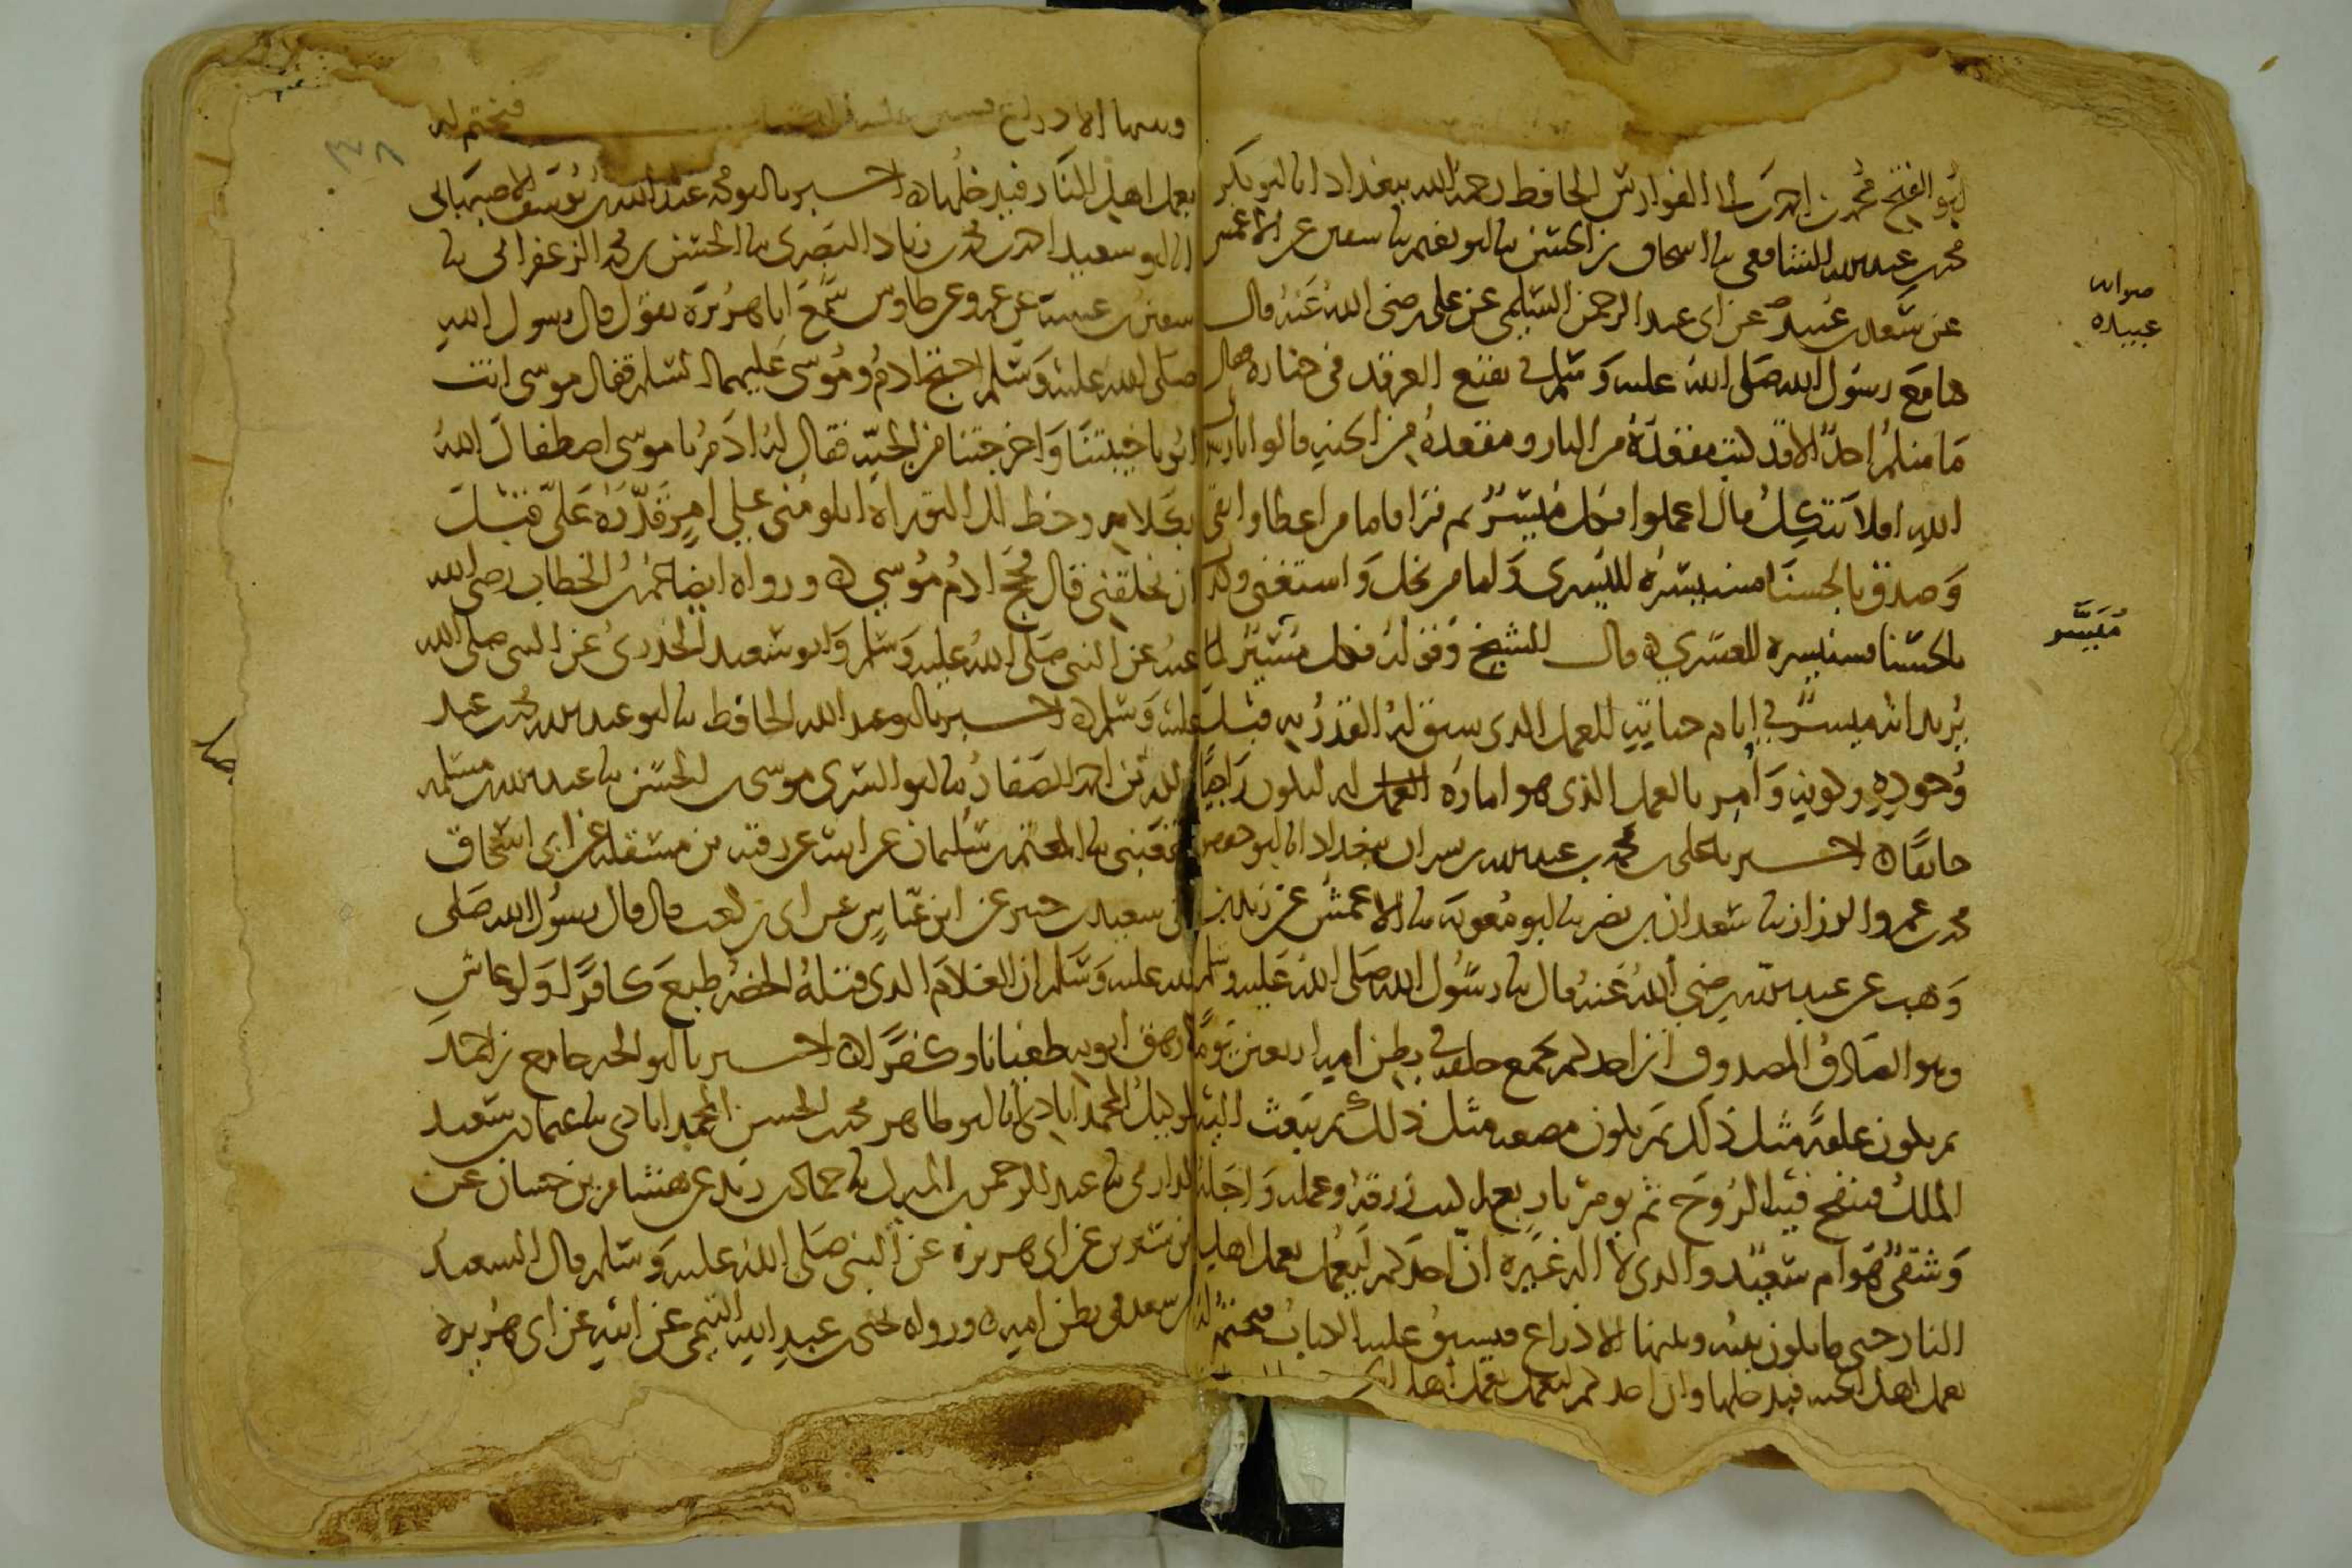 ابو الفتح محمد بن احمد بن ابي الفوارس الحافظ رحمه الله ببغداد انا ابو بكر
محمد بن عبد الله الشافعي نا اسحاق بن الحسن نا ابو نعيم نا سفين عن الاعمش
عن سعد بن عبيد عن ابي عبد الرحمن السلمي عن علي رضي الله عنه قال
كنا مع رسول الله صلى الله عليه وسلم في بقيع الغرقد في جنازة فقال
ما منكم احد الا قد كتب مقعده من النار ومقعده من الجنة قالوا يا رسول
الله افلا نتكل قال اعملوا فكل ميسر ثم قرا فاما من اعطا واتقى
وصدق بالحسنا فسنيسره لليسرى واما من بخل واستغنى وكذب
بالحسنا فسنيسره للعسرى ه قال الشيخ وقوله فكل ميسر لما
يريد انه ميسر في ايام حياته للعمل الذي سبق له القدر به قبل
وجوده وكونه وامر بالعمل الذي هو امارة العمل له ليكون راجيا
خايفا ه اخبرنا علي بن محمد بن عبد الله بن بشران ببغداد انا ابو جعفر
محمد بن عمرو الرزاز نا سعدان بن نصر نا ابو معوية نا الاعمش عن زيد بن
وهب عن عبد الله رضي الله عنه قال نا رسول الله صلى الله عليه وسلم
وهو الصادق المصدوق ان احدكم يجمع خلقه في بطن امه اربعين يوما
ثم يكون علقة مثل ذلك ثم يكون مضغة مثل ذلك ثم يبعث اليه
الملك فينفخ فيه الروح ثم يومر باربع يكتب رزقه وعمله واجله
وشقي هو ام سعيد والذي لا اله غيره ان احدكم ليعمل بعمل اهل
النار حتى ما يكون بينه وبينها الا ذراع فيسبق عليه الكتاب فيختم له
بعمل اهل الجنة فيدخلها وان احدكم ليعمل بعمل اهل
صوابه
عبيده
مُيَسَّر
وبينها الا ذراع فيسبق عليه الكتاب فيختم له
بعمل اهل النار فيدخلها ه اخبرنا ابو محمد عبد الله بن يوسف الاصبهاني
انا ابو سعيد احمد بن محمد بن زياد البصري نا الحسن بن محمد الزعفراني نا
سفين بن عيينة عن عمرو عن طاوس سمع ابا هريرة يقول قال رسول الله
صلى الله عليه وسلم احتج ادم وموسى عليهما السلم فقال موسى انت
ابونا خيبتنا واخرجتنا من الجنة فقال له ادم يا موسى اصطفاك الله
بكلامه وخط لك التوراة اتلومني على امر قدره علي قبل
ان يخلقني قال فحج ادم موسى ه ورواه ايضا عمر بن الخطاب رضي الله
عنه عن النبي صلى الله عليه وسلم وابو سعيد الخدري عن النبي صلى الله
عليه وسلم ه اخبرنا ابو عبد الله الحافظ نا ابو عبد الله محمد بن عبد
الله بن احمد الصفار نا ابو السري موسى بن الحسن نا عبد الله بن مسلمة
القعنبي نا المعتمر بن سليمان عن ابيه عن رقبة بن مسقلة عن ابي اسحاق
عن سعيد بن جبير عن ابن عباس عن ابي بن كعب قال قال رسول الله صلى
الله عليه وسلم ان الغلام الذي قتله الخضر طبع كافرا ولو عاش
لارهق ابويه طغيانا وكفرا ه اخبرنا ابو الخير جامع بن احمد
الوكيل المحمداباذي انا ابو طاهر محمد بن الحسن المحمداباذي نا عثمان بن سعيد
الدارمي نا عبد الرحمن بن المبارك نا حماد بن زيد عن هشام بن حسان عن
ابن سيرين عن ابي هريرة عن النبي صلى الله عليه وسلم قال السعيد
من سعد في بطن امه ه ورواه يحيى بن عبيد الله التيمي عن ابيه عن ابي هريرة